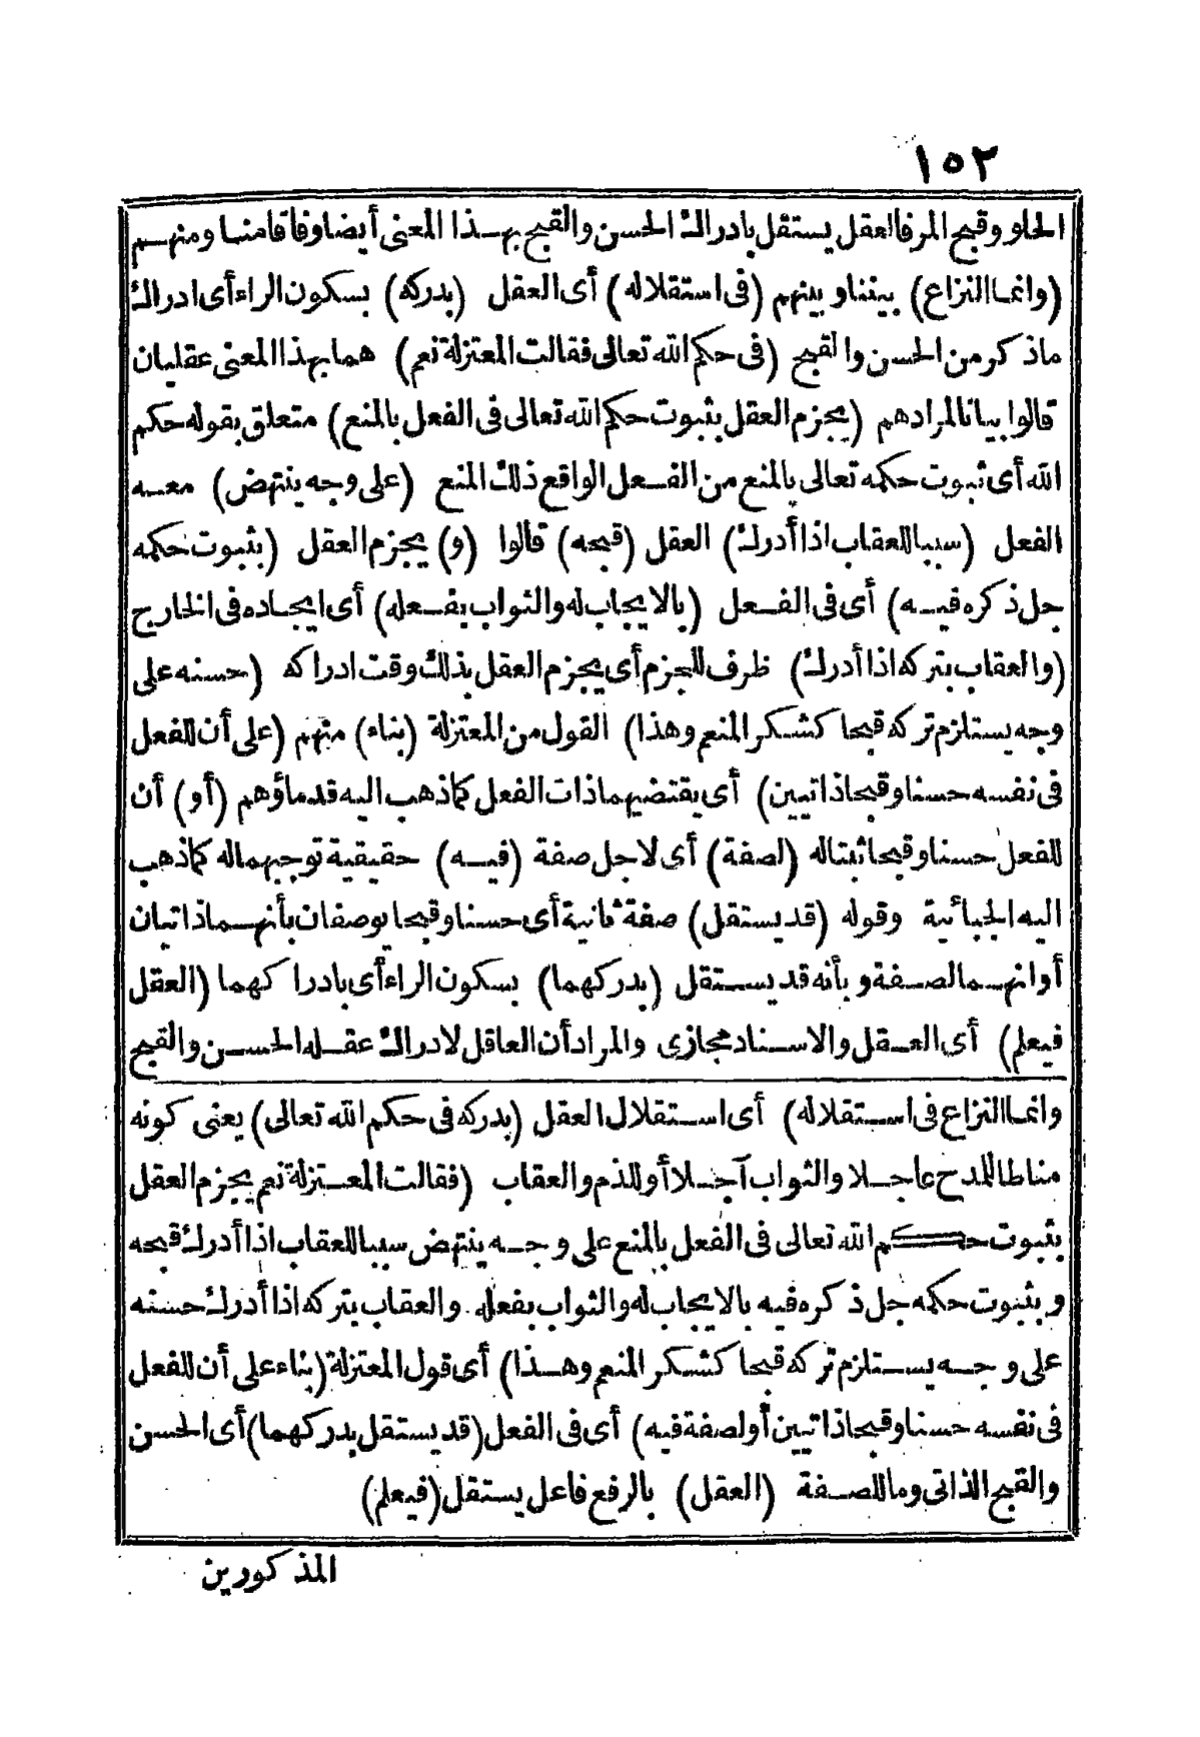 ١٥٢
الحلو وقبح المر فالعقل يستقل بادراك الحسن والقبح بهذا المعنى أيضا وفاقا منا ومنهم
(وانما النزاع) بيننا وبينهم (فى استقلاله) أى العقل (بدركه) بسكون الراء أى ادراك
ماذكر من الحسن والقبح (فى حكم الله تعالى فقالت المعتزلة نعم) هما بهذا المعنى عقليان
قالوا بيانا لمرادهم (يجزم العقل بثبوت حكم الله تعالى فى الفعل بالمنع) متعلق بقوله حكم
الله أى ثبوت حكمه تعالى بالمنع من الفعل الواقع ذلك المنع (على وجه ينتهض) معه
الفعل (سببا للعقاب اذا أدرك) العقل (قبحه) قالوا (و) يجزم العقل (بثبوت حكمه
جل ذكره فيه) أى فى الفعل (بالايجاب له والثواب بفعله) أى ايجاده فى الخارج
(والعقاب بتركه اذا أدرك) ظرف للجزم أى يجزم العقل بذلك وقت ادراكه (حسنه على
وجه يستلزم تركه قبحا كشكر المنعم وهذا) القول من المعتزلة (بناء) منهم (على أن للفعل
فى نفسه حسنا وقبحا ذاتيين) أى يقتضيهما ذات الفعل كما ذهب اليه قدماؤهم (أو) أن
للفعل حسنا وقبحا ثبتا له (لصفة) أى لاجل صفة (فيه) حقيقية توجبهما له كما ذهب
اليه الجبائية وقوله (قد يستقل) صفة ثانية أى حسنا وقبحا يوصفان بأنهما ذاتيان
أو انهما لصفة وبأنه قد يستقل (بدركهما) بسكون الراء أى بادراكهما (العقل
فيعلم) أى العقل والاسناد مجازى والمراد أن العاقل لادراك عقله الحسن والقبح
وانما النزاع فى استقلاله) أى استقلال العقل (بدركه فى حكم الله تعالى) يعنى كونه
مناطا للمدح عاجلا والثواب آجلا أو للذم والعقاب (فقالت المعتزلة نعم يجزم العقل
بثبوت حكم الله تعالى فى الفعل بالمنع على وجه ينتهض سببا للعقاب اذا أدرك قبحه
وبثبوت حكمه جل ذكره فيه بالايجاب له والثواب بفعله والعقاب بتركه اذا أدرك حسنه
على وجه يستلزم تركه قبحا كشكر المنعم وهذا) أى قول المعتزلة (بناء على أن للفعل
فى نفسه حسنا وقبحا ذاتيين أو لصفة فيه) أى فى الفعل (قد يستقل بدركهما) أى الحسن
والقبح الذاتى وما للصفة (العقل) بالرفع فاعل يستقل (فيعلم)
المذكورين